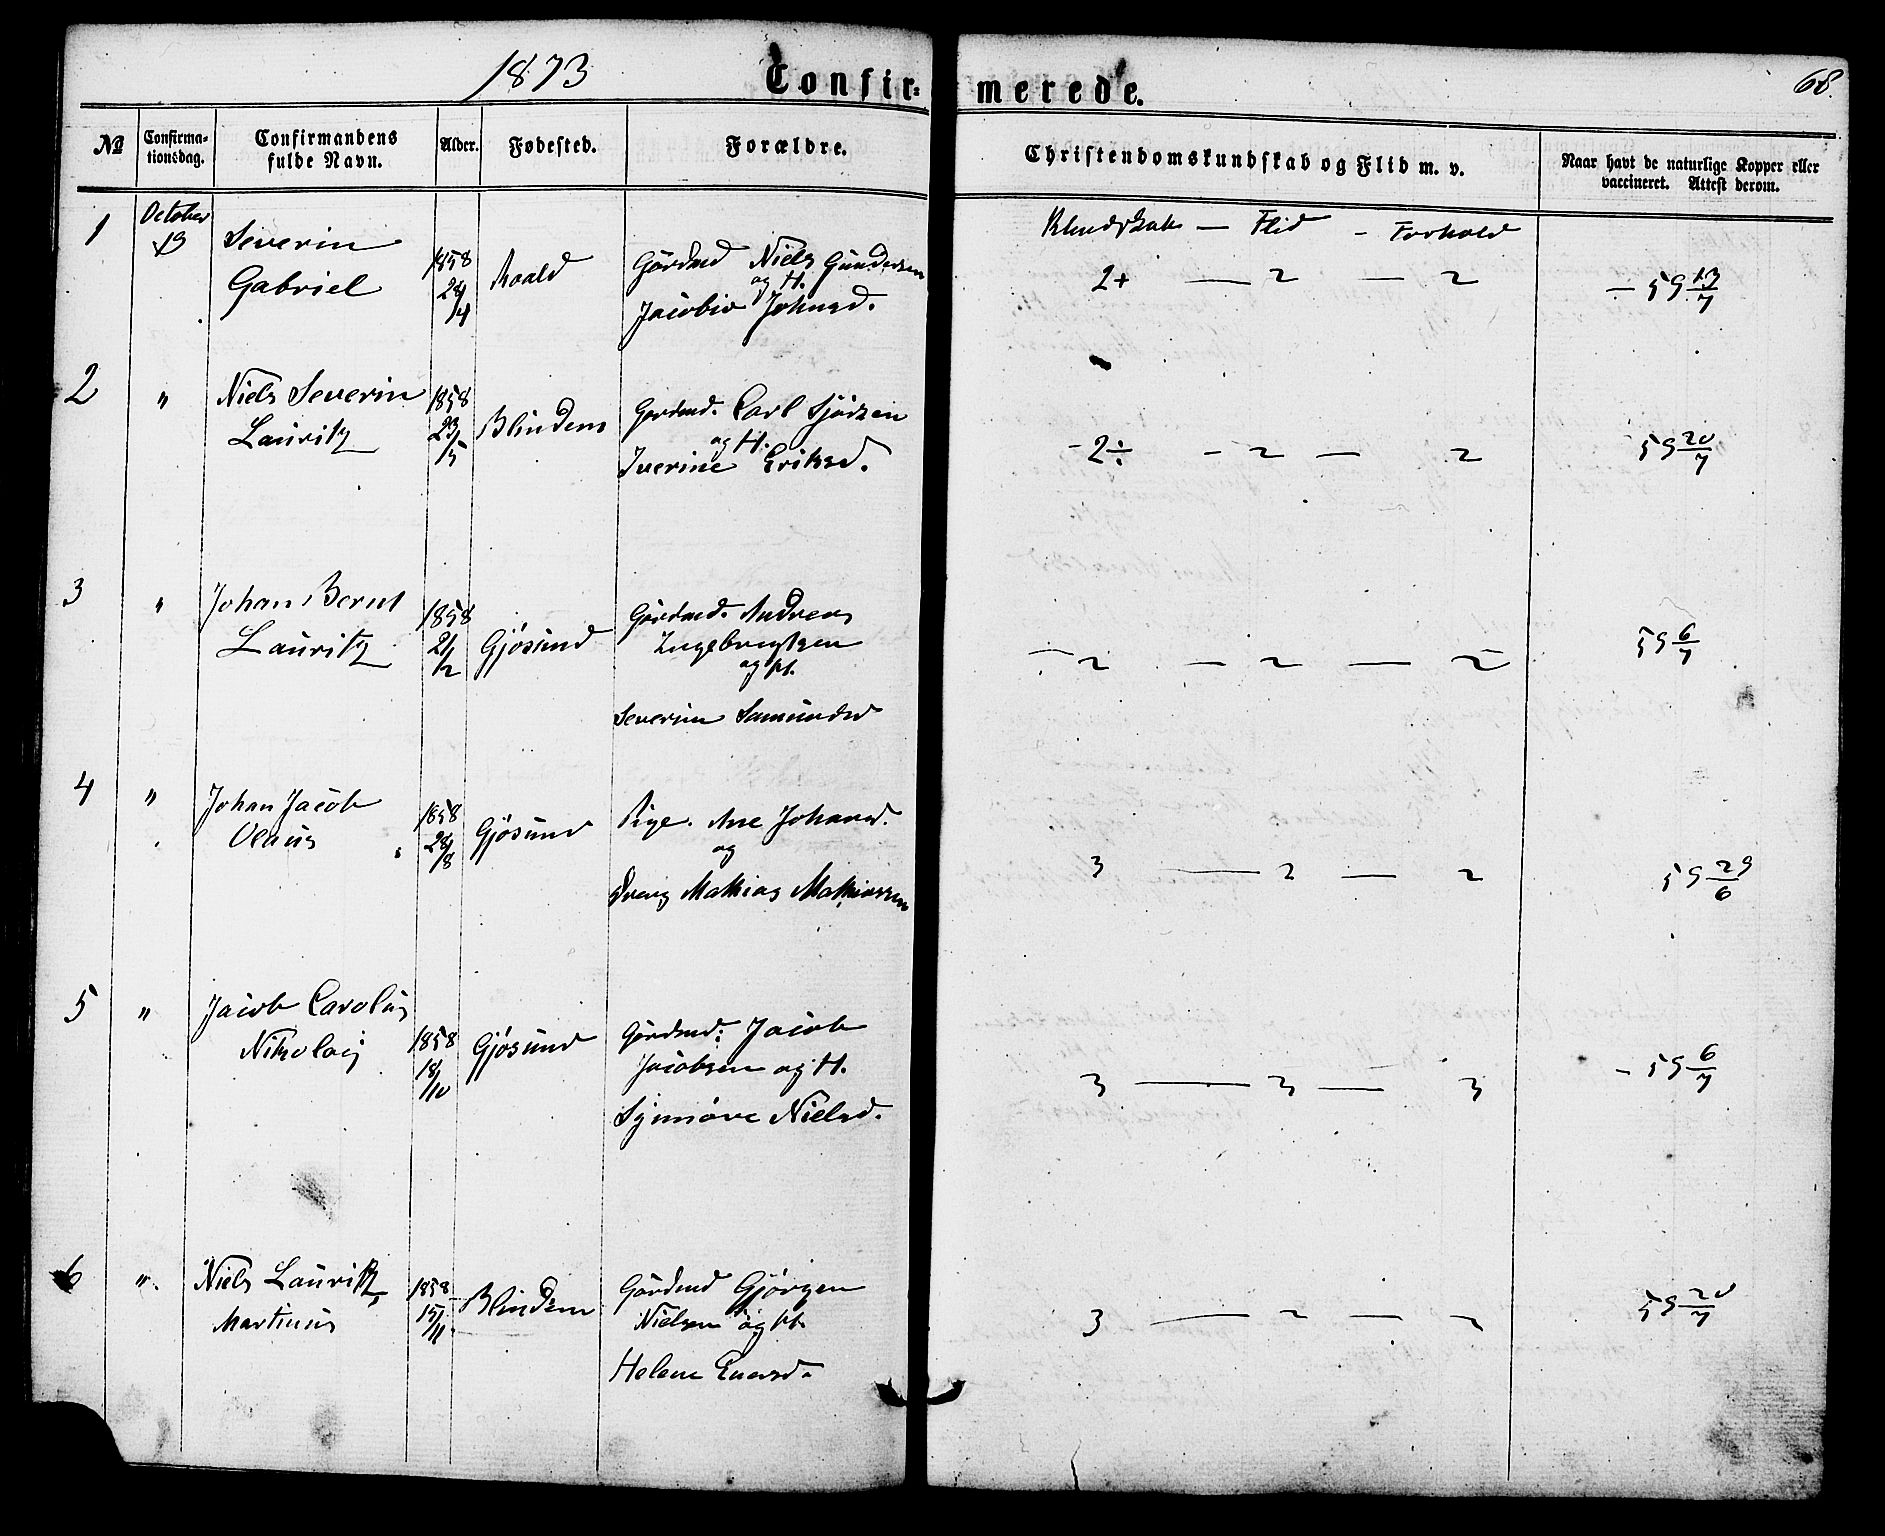 1873
Confirmerede.
68.
№
Confirmationsdag.
Confirmandens fulde Navn.
Alder.
Fødested.
Forældre.
Christendomskundskab og Flid m. v.
Naar havt de naturlige Kopper eller vaccineret. Attest derom.
Kundskab — Flid - Forhold
1
October
19
Severin
Gabriel
1858
28/4
Roald
Gårdmd Niels Gundersen
og H.
Jacobie Johnsd.
2+ — 2 — 2
— 59 13/7
2
"
Niels Severin
Lauritz
1858
23/5
Blindem
Gårdmd. Carl Sjórsen
og H.
Iverine Eriksd.
- 2÷ - 2 — 2
59 20/7
3
"
Johan Bernt
Lauritz
1858
21/2
Gjøsund
Gårdmd. Andreas
Ingebrigtsen
og H.
Severine Samundsd
- 2 — 2 — 2
59 6/7
4
"
Johan Jacob
Olaus
1858
28/8
Gjøsund
Pige. Ane Johansd.
og
Dreng Mathias Mathiassen
3 — 2 — 2
59 29/6
5
"
Jacob Carolus
Nikolaij
1858
18/10
Gjøsund
Gårdmd: Jacob
Jacobsen og H.
Synnøve Nielsd.
3 — 3 — 3
- 59 6/7
6
"
Niels Lauritz
Martinus
1858
15/11
Blindem
Gårdmd Gjørgen
Nielsen og H.
Helene Enersd.
3 — 2 — 2
59 20/7